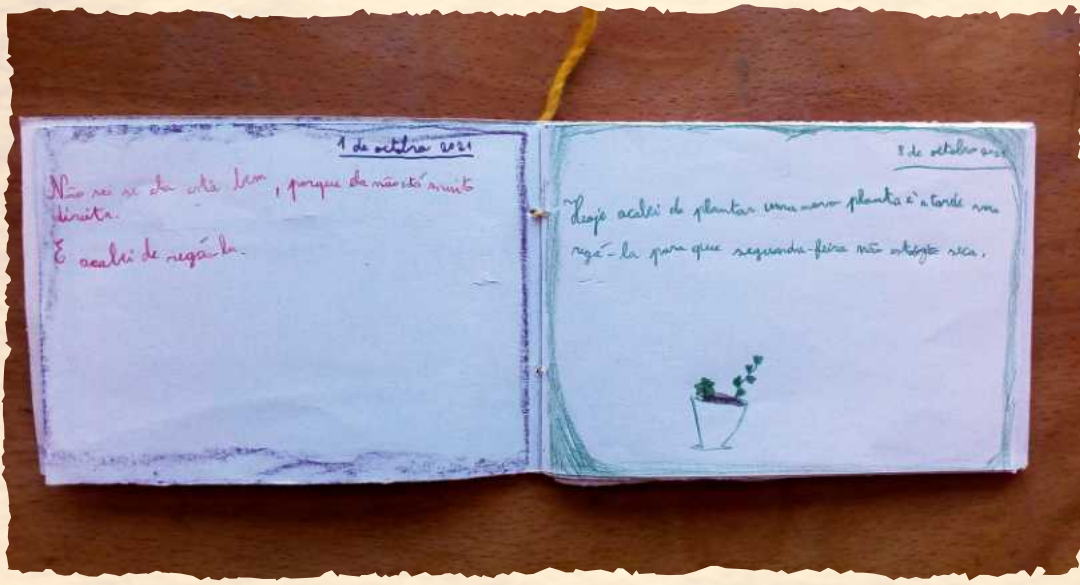 1 de octubro 2021
Não sei se ela está bem, porque ela não está muito
direita.
E acabei de regá-la.
8 de octubro 2021
Hoaje acabei de plantar uma nova planta e à tarde vou
regá-la para que segunda-feira não esteja seca.